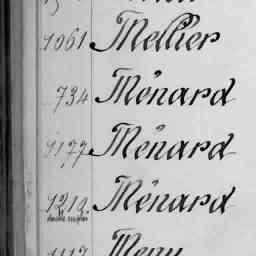 1061 Mellier
734 Ménard
1177 Ménard
1212. Ménard
1117 Meny